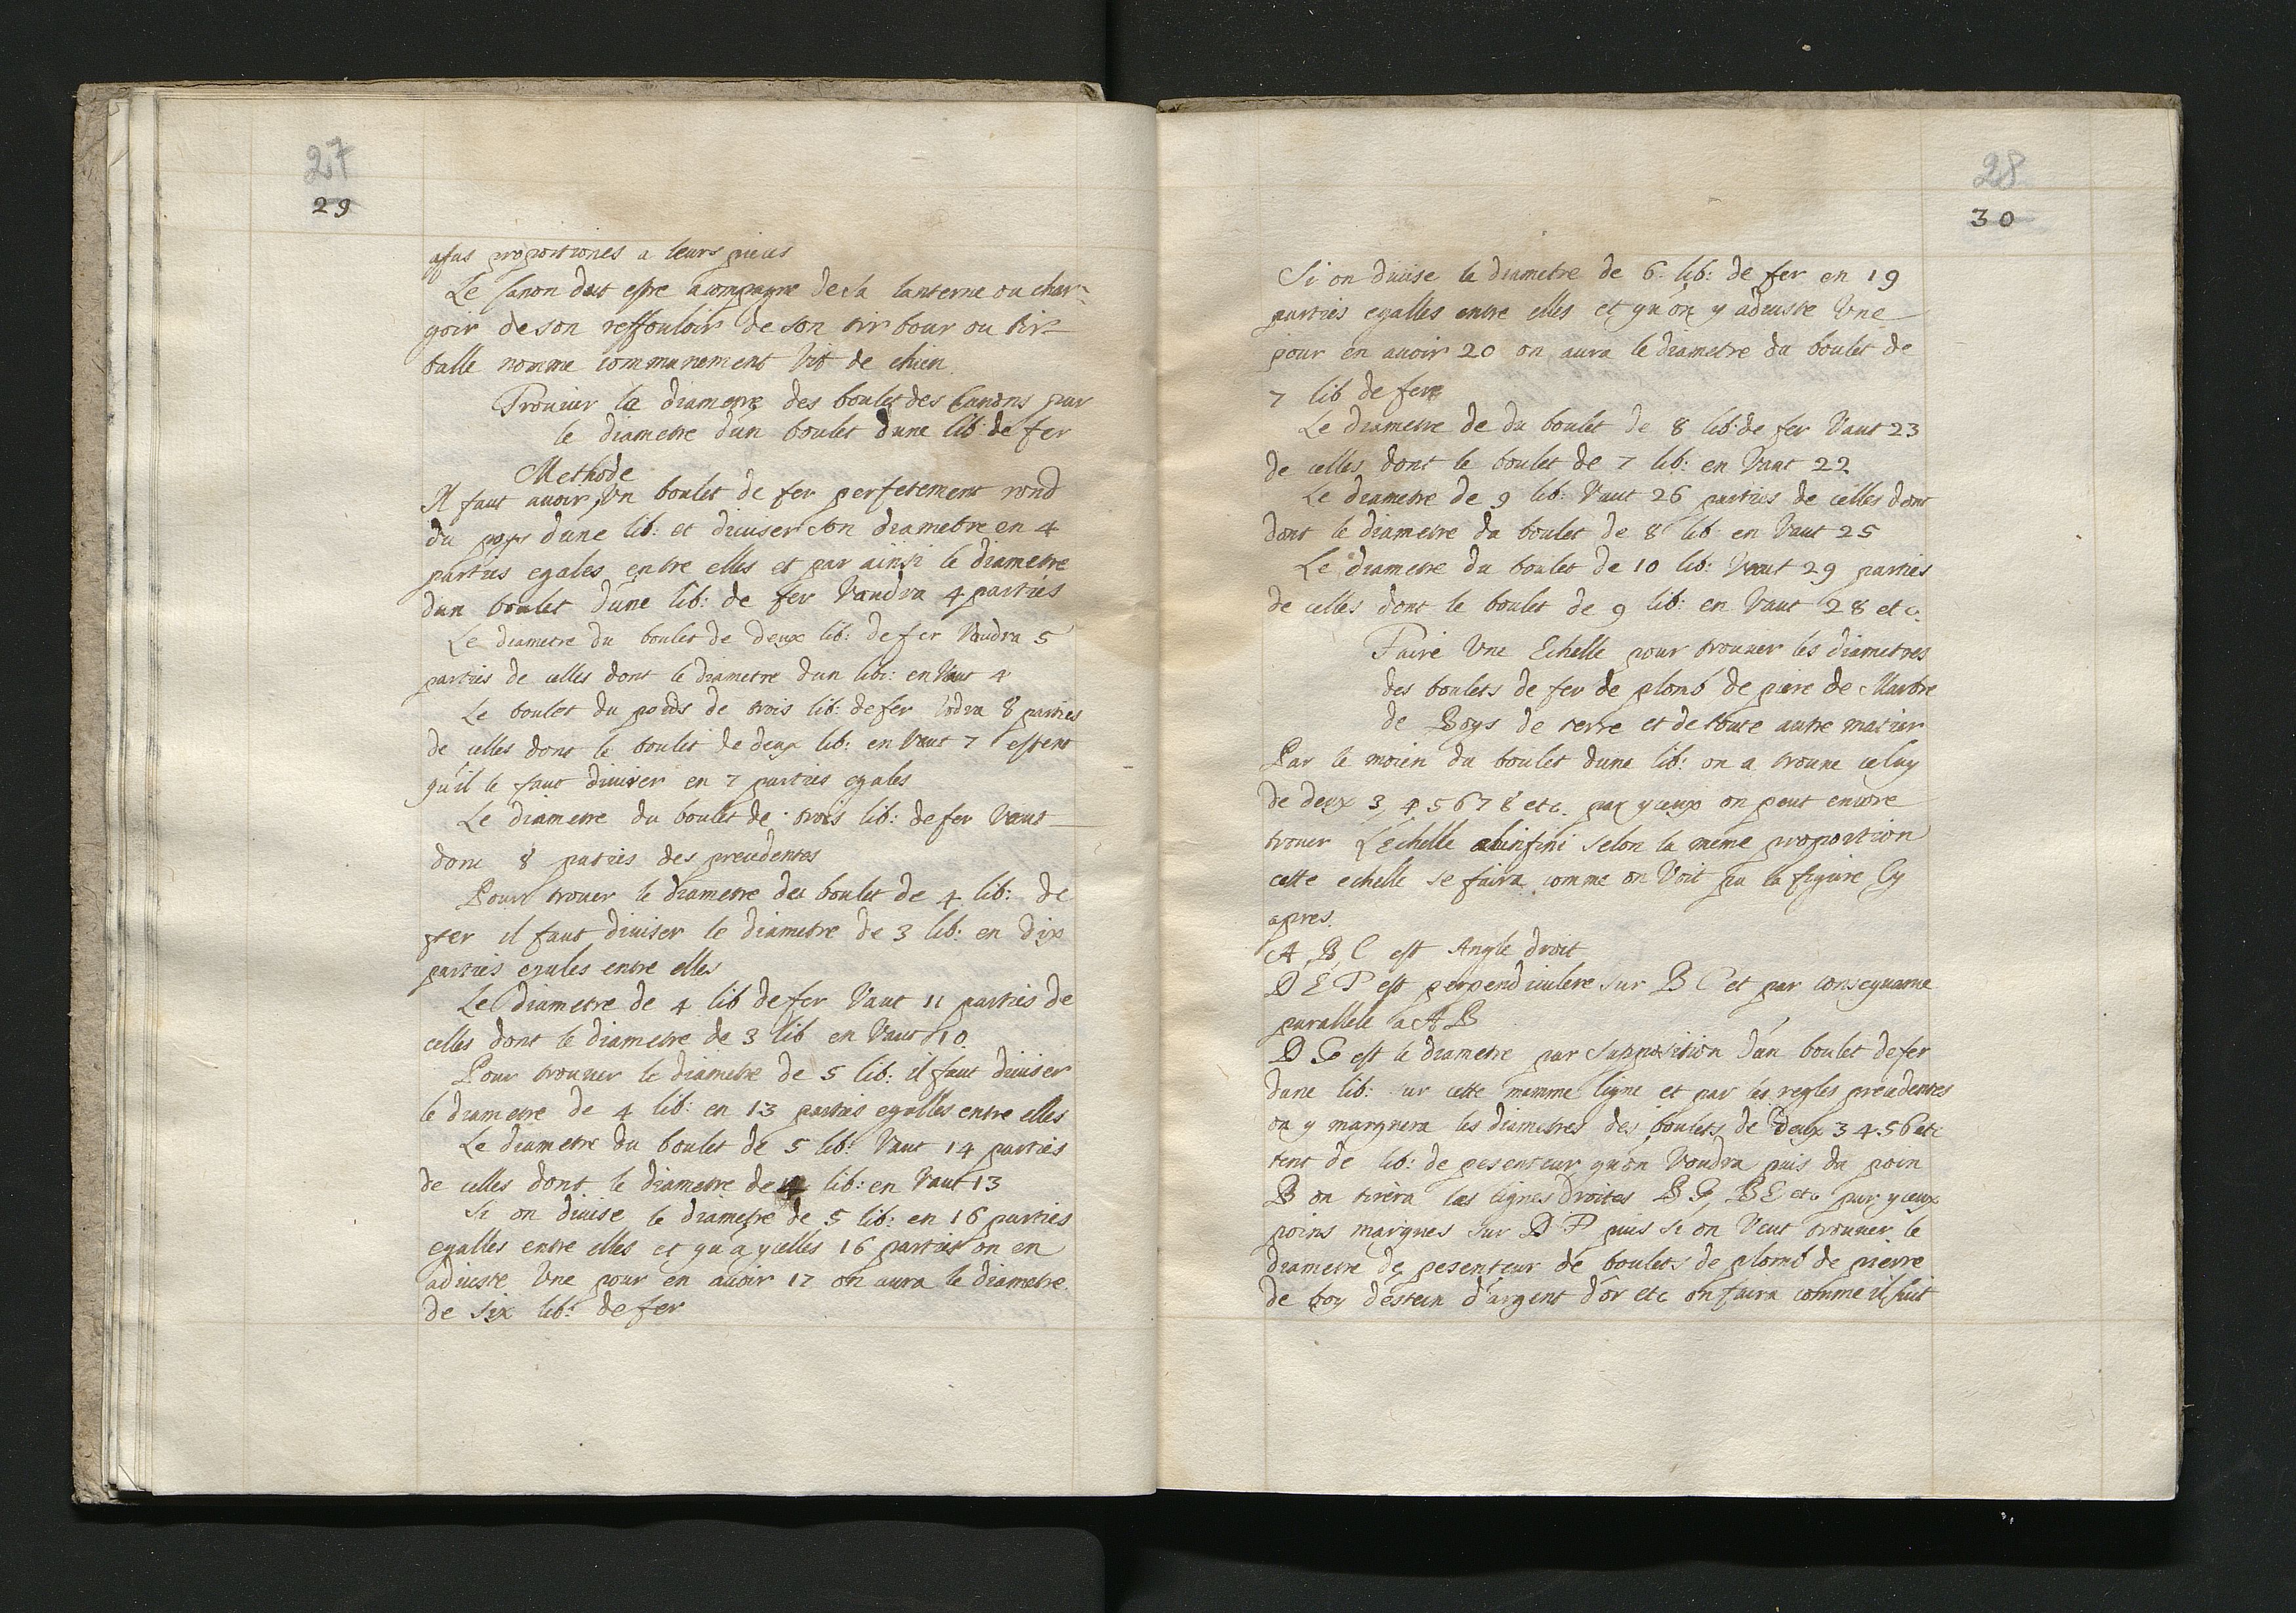 27
29
afus proportiones a leurs pieces
Le Canon doit estre acompagne de sa lanterne ou char-
goir de son reffouloir de son tir bour ou tir-
balle nomme communement Vit de chien
Trouuer le diametre des boulet des Canons par
le diametre d'un boulet dune lib de fer
Methode
Il faut avoir, Un boulet de fer perfetement rond
du poys dune lib: et diuiser son diametre en 4
parties egales entre elles et par ainsi le diametre
dun boulet dune lib: de fer Vaudra 4 parties
Le diametre du boulet de deux lib: de fer Vaudra 5
parties de celles dont le diametre dun lib: en Vaut 4
Le boulet du poids de trois lib: de fer Vodra 8 parties
de celles dont le boulet de deux lib: en Vaut 7
qu'il le faut diuiser en 7 parties egales
Le diametre du boulet de trois lib: de fer Vaut
donc 8 paties des precedentes
Pour trouer le diametre du boulet de 4 lib: de
fer il faut diuiser le diametre de 3 lib: en dix
parties egales entre elles
Le diametre de 4 lib de fer Vaut 11 parties de
celles dont le diametre de 3 lib en Vaut 10
Pour trouuer le diametre de 5 lib: il faut diuiser
le diametre de 4 lib: en 13 parties egalles entre elles
Le diametre du boulet de 5 lib: Vaut 14 parties
de celles dont le diametre de 4 lib: en Vaut 13
Si on diuise le diametre de 5 lib: en 16 parties
egalles entre elles et qu'a ycelles 16 parties on en
adiuste Une pour en auoir 17 on aura le diametre
de six lib: de fer
28
30
Si on diuise le diametre de 6 lib: de fer en 19
parties egalles entre elles et qu'on y adiuste Une
pour en auoir 20 on aura le diametre du boulet de
7 lib de fer
Le diametre de du boulet de 8 lib: de fer Vaut 23
de celles dont le boulet de 7 lib: en Vaut 22
Le diametre de 9 lib: Vaut 26 parties de celles dont
dont le diametre du boulet de 8 lib en Vaut 25
Le diametre du boulet de 10 lib: Vaut 29 parties
de celles dont le boulet de 9 lib: en Vaut 28 etc.
Faire Une Echelle pour trouuer les diametres
des boulets de fer de plomb de piere de Marbre
de Boys de terre et de toute autre matier
Par le moien du boulet dune lib: on a trouue celuy
de deux 3, 4 5 6 7 8 etc. par yceux on peut encore
trouer L'echelle alinfini selon la meme proportion
cette echelle se faira comme on Voit pa la figure Cy
apres.
A, B, C est Angle droit
D E F est perpendiculere sur B C et par consequame
parallele a A B
D G est le diametre par supposition d'un boulet de fer
dune lib: sur cette memme ligne et par les regles precedentes
on y marquera les diametres des boulets de deux 3 4 5 6 etc
tent de lib: de pesenteur quon Voudra puis du poin
B on tirera las lignes droites B G, B E etc par yceux
poins marques sur D F puis si on Veut trouuer le
diametre de pesenteur de boulets de plomb de pierre
de boy d'estein d'argent d'or etc on faira comme il suit